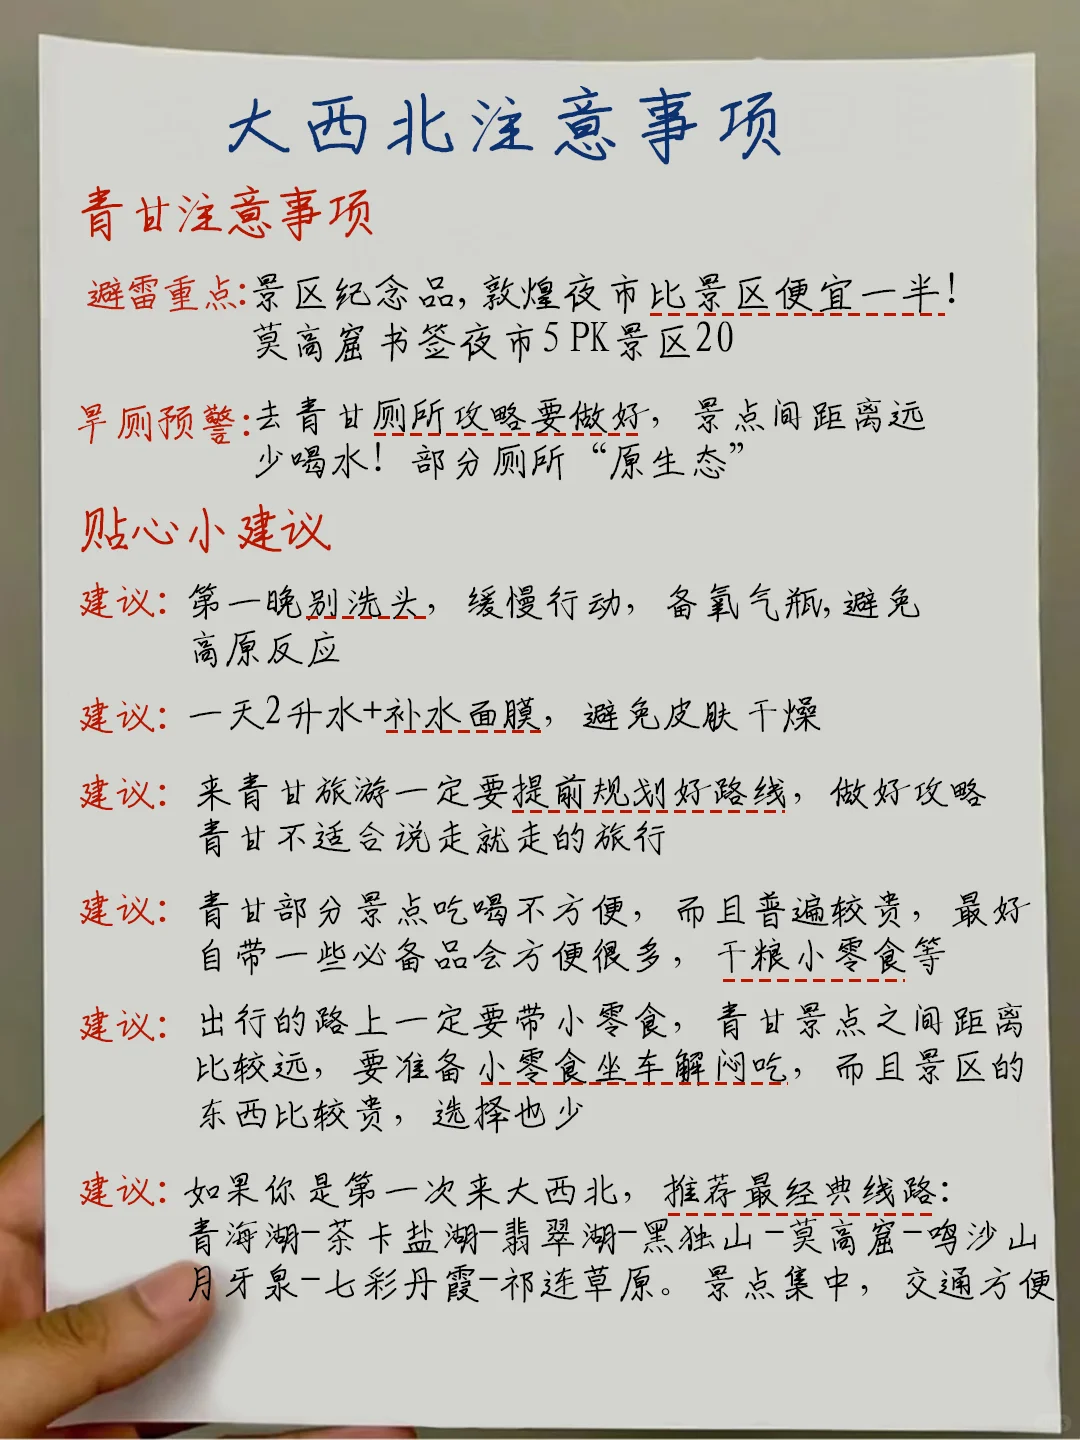 大西北注意事项
青甘注意事项
避雷重点:景区纪念品,敦煌夜市比景区便宜一半!
莫高窟书签夜市5PK景区20
旱厕预警:去青甘厕所攻略要做好,景点间距离远
少喝水!部分厕所“原生态”
贴心小建议
建议:第一晚别洗头,缓慢行动,备氧气瓶,避免
高原反应
建议:一天2升水+补水面膜,避免皮肤干燥
建议:来青甘旅游一定要提前规划好路线,做好攻略
青甘不适合说走就走的旅行
建议:青甘部分景点吃喝不方便,而且普遍较贵,最好
自带一些必备品会方便很多,干粮小零食等
建议:出行的路上一定要带小零食,青甘景点之间距离
比较远,要准备小零食坐车解闷吃,而且景区的
东西比较贵,选择也少
建议:如果你是第一次来大西北,推荐最经典线路:
青海湖-茶卡盐湖-翡翠湖-黑独山-莫高窟-鸣沙山
月牙泉-七彩丹霞-祁连草原。景点集中,交通方便